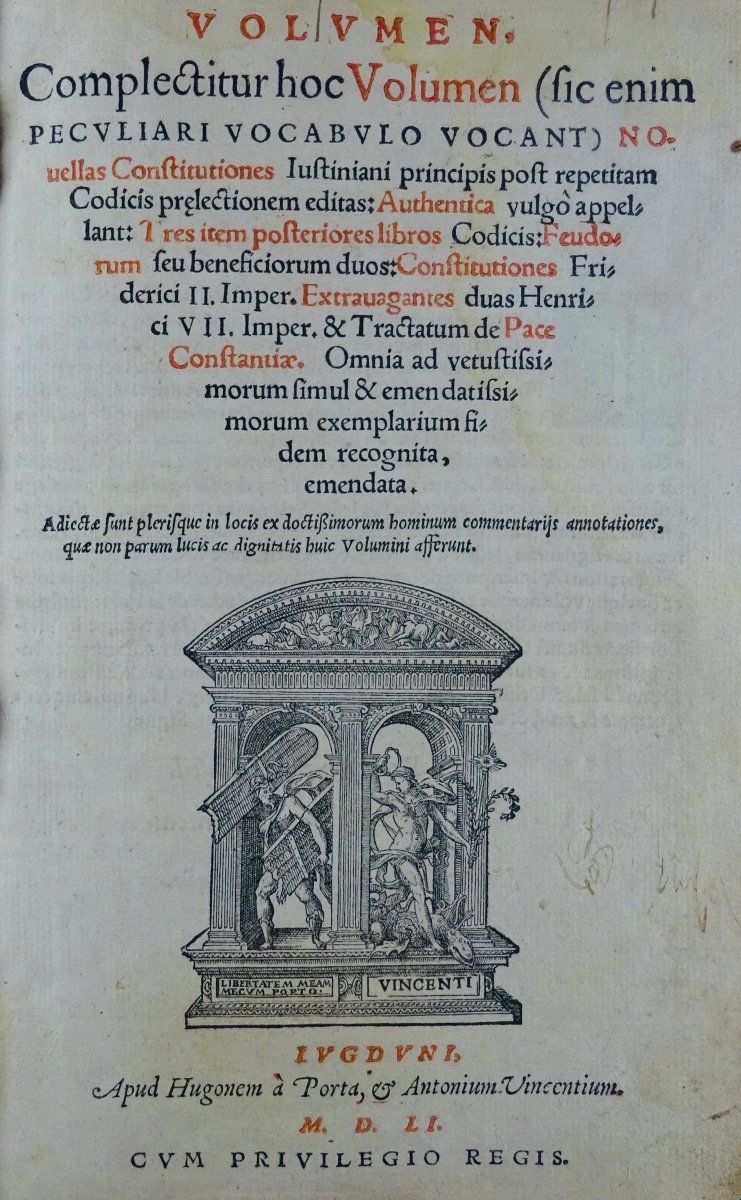 VOLVMEN,
Complectitur hoc Volumen (sic enim
PECVLIARI VOCABVLO VOCANT) NO-
uellas Constitutiones Iustiniani principis post repetitam
Codicis pręlectionem editas: Authentica vulgò appel-
lant: Tres item posteriores libros Codicis: Feudo-
rum seu beneficiorum duos: Constitutiones Fri-
derici II. Imper. Extrauagantes duas Henri-
ci VII. Imper. & Tractatum de Pace
Constantiæ. Omnia ad vetustissi-
morum simul & emendatissi-
morum exemplarium fi-
dem recognita,
emendata.
Adiectæ sunt plerisque in locis ex doctißimorum hominum commentarijs annotationes,
quæ non parum lucis ac dignitatis huic Volumini afferunt.
LIBERTATEM MEAM
MECVM PORTO.
VINCENTI
LVGDVNI,
Apud Hugonem à Porta, & Antonium Vincentium.
M. D. LI.
CVM PRIVILEGIO REGIS.